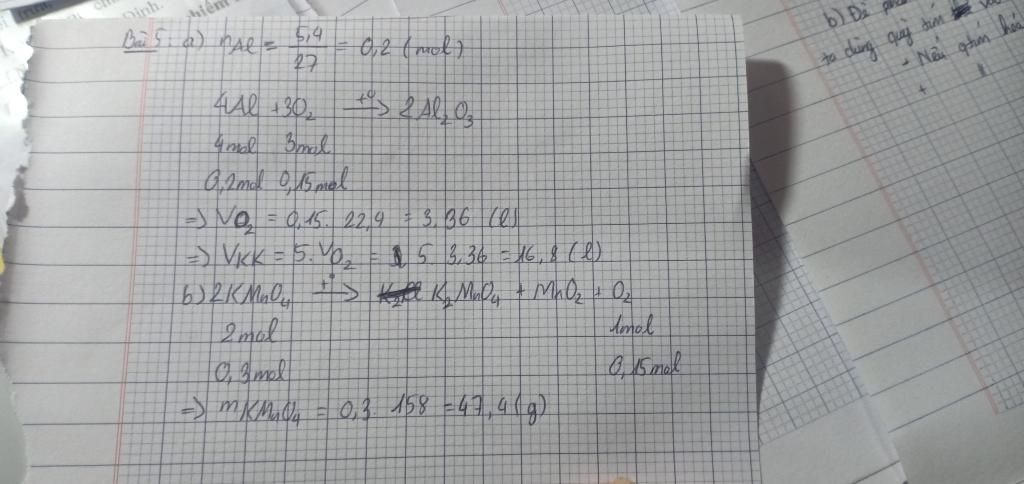 Bài 5: a) nAl = 5,4/27 = 0,2 (mol)
4Al + 3O₂ —t°→ 2Al₂O₃
4mol 3mol
0,2mol 0,15mol
=> VO₂ = 0,15. 22,4 = 3,36 (l)
=> VKK = 5. VO₂ = 5 3,36 = 16,8 (l)
b) 2KMnO₄ —t°→ K₂MnO₄ + MnO₂ + O₂
2mol 1mol
0,3mol 0,15mol
=> mKMnO₄ = 0,3 . 158 = 47,4 (g)
b) Để
ta dùng quỳ tím
+ Nếu qtím hóa
+